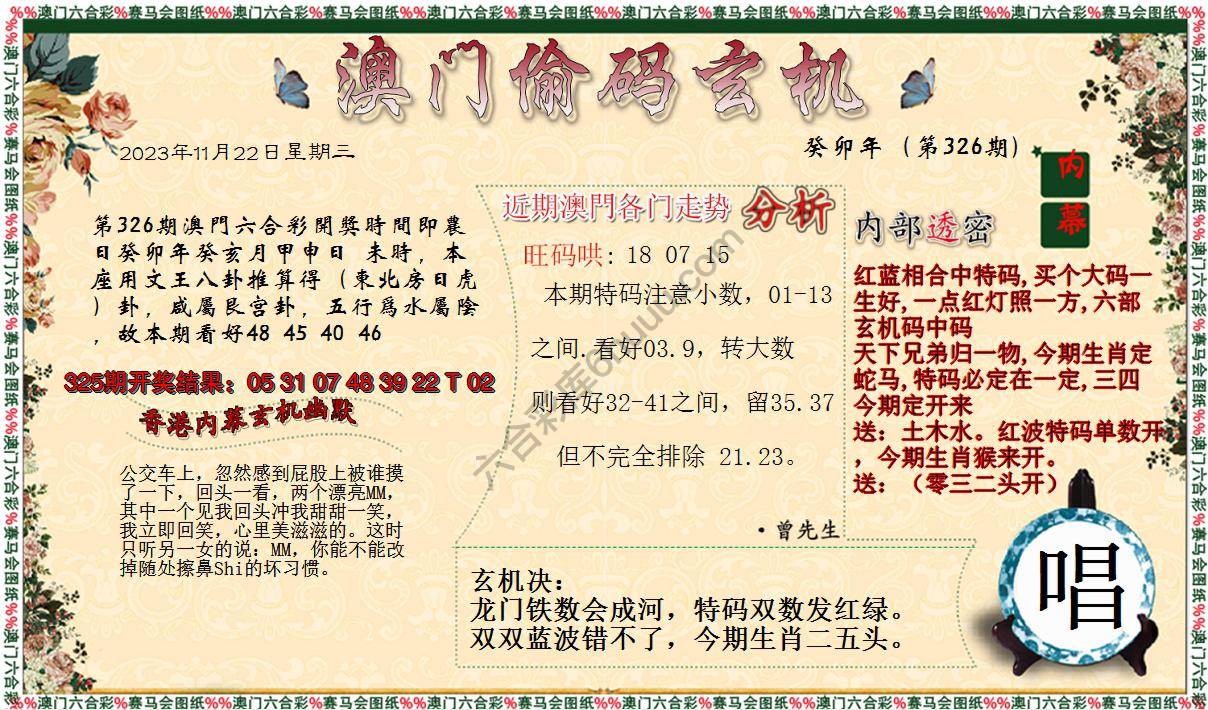 %%澳门六合彩%赛马会图纸%%澳门六合彩%赛马会图纸%%澳门六合彩%赛马会图纸%%澳门六合彩%赛马会图纸%%澳门六合彩%赛马会图纸%%澳门六合彩%赛马会图纸%%
澳门偷码玄机
2023年11月22日星期三
癸卯年（第326期）
内幕
第326期澳門六合彩開獎時間即農
日癸卯年癸亥月甲申日 未時，本
座用文王八卦推算得（東北房日虎
）卦，咸屬艮宫卦，五行爲水屬陰
，故本期看好48 45 40 46
325期开奖结果：05 31 07 48 39 22 T 02
香港内幕玄机幽默
公交车上，忽然感到屁股上被谁摸
了一下，回头一看，两个漂亮MM，
其中一个见我回头冲我甜甜一笑，
我立即回笑，心里美滋滋的。这时
只听另一女的说：MM，你能不能改
掉随处擦鼻Shi的坏习惯。
近期澳門各门走势 分析
旺码哄: 18 07 15
本期特码注意小数，01-13
之间.看好03.9，转大数
则看好32-41之间，留35.37
但不完全排除 21.23。
·曾先生
内部透密
红蓝相合中特码,买个大码一
生好,一点红灯照一方,六部
玄机码中码
天下兄弟归一物,今期生肖定
蛇马,特码必定在一定,三四
今期定开来
送：土木水。红波特码单数开
，今期生肖猴来开。
送：（零三二头开）
玄机决：
龙门铁数会成河，特码双数发红绿。
双双蓝波错不了，今期生肖二五头。
唱
%%澳门六合彩%赛马会图纸%%澳门六合彩%赛马会图纸%%澳门六合彩%赛马会图纸%%澳门六合彩%赛马会图纸%%澳门六合彩%赛马会图纸%%澳门六合彩%赛马会图纸%%